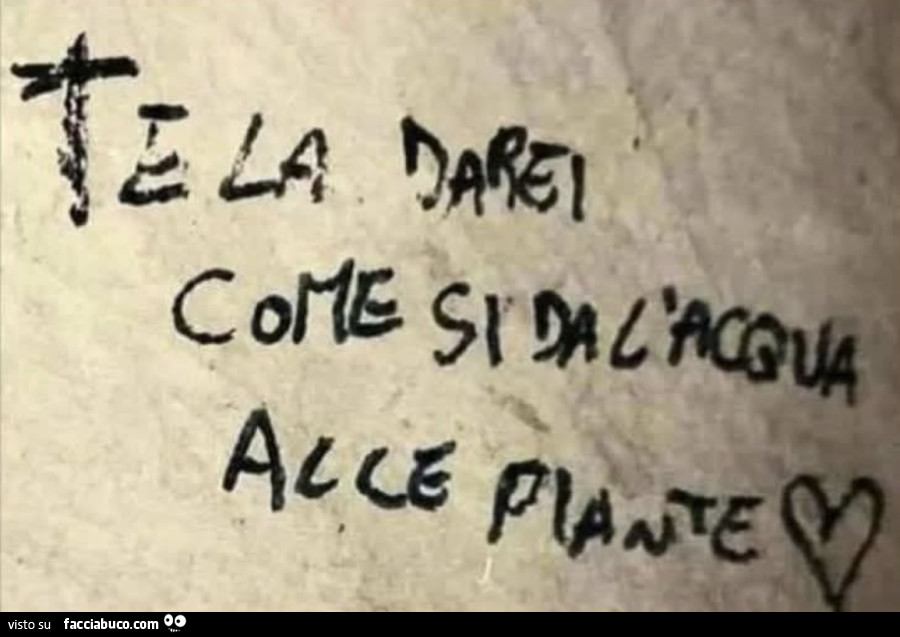 TE LA DAREI
COME SI DA L'ACQUA
ALLE PIANTE
visto su facciabuco.com